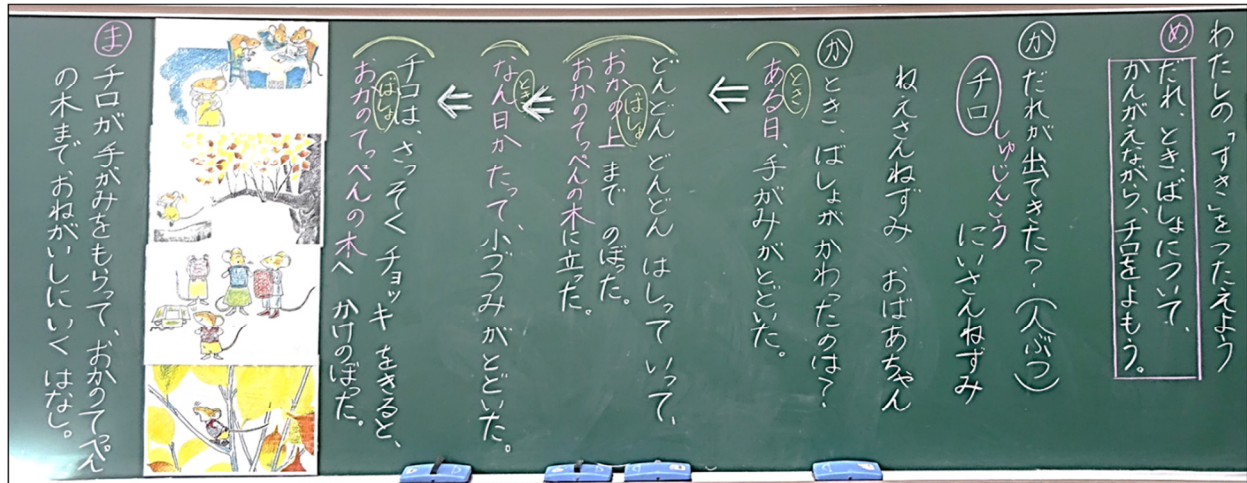 わたしの「すき」をつたえよう
め
だれ、とき、ばしょについて、
かんがえながら、チロをよもう。
か だれが出てきた?(人ぶつ)
チロ しゅじんこう にいさんねずみ
ねえさんねずみ おばあちゃん
か とき、ばしょがかわったのは?
とき
ある日、手がみがとどいた。
どんどん どんどん はしって いって、
ばしょ
おかの上まで のぼった。
おかのてっぺんの木に立った。
とき
なん日かたって、小づつみがとどいた。
チロは、さっそくチョッキをきると、
ばしょ
おかのてっぺんの木へ かけのぼった。
ま チロが手がみをもらって、おかのてっぺん
の木まで、おねがいしにいく はなし。